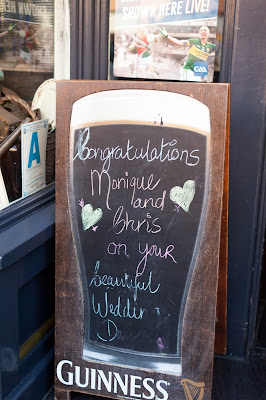 SHOWN HERE LIVE!
GAA
A
Congratulations
Monique
and
Chris
on your
beautiful
Wedding
Day
GUINNESS